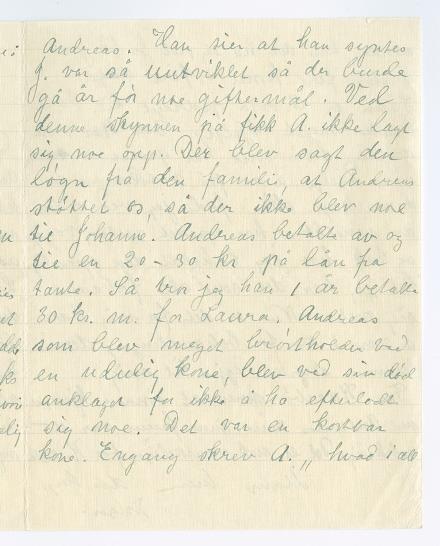 Andreas. Han sier at han syntes
J. var så uutviklet så der burde
gå år før noe giftermål. Ved
denne skynnen på fikk A. ikke lagt
sig noe opp. Der blev sagt den
løgn fra den famili, at Andreas
støttet os, så der ikke blev noe
til Johanne. Andreas betalte av og
til en 20-30 kr på lån fra
tante. Så tror jeg han 1 år betalte
30 kr. m. for Laura. Andreas
som blev meget ved
en udulig kone, blev ved sin død
anklaget for ikke å ha efterlodt
sig noe. Det var en kostbar
kone. Engang skrev A. „ hvad i all